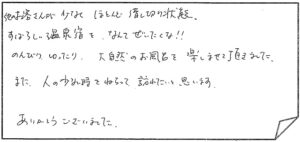 他お客さんが少なく ほとんど 貸し切り状態。
すばらしい温泉宿を、なんて ぜいたくな!!
のんびり ゆったり、大自然のお風呂を 楽しませて頂きました。
また、人の少ない時をねらって 訪れたいと思います。
ありがとうございました。